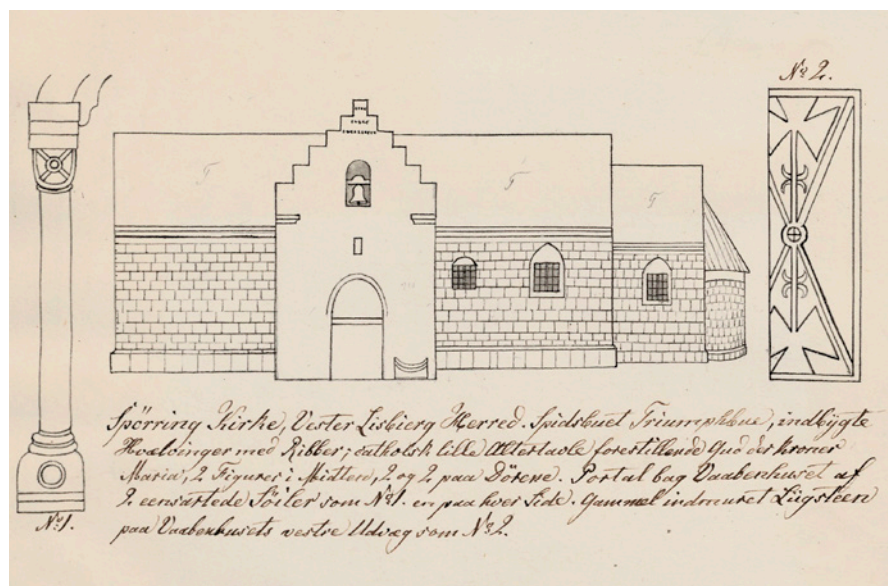 No 2.
T
T
T
Spörring Kirke, Vester Lisbierg Herred. Spidsbuet Triumphbue, indbÿgte
Hvælvinger med Ribber; catholsk lille Altertavle forestillende Gud der kroner
Maria, 2 Figurer i Midten, 2 og 2 paa Dörene. Portal bag Vaabenhuset af
2 eensartede Söiler som No 1. en paa hver Side. Gammel indmuret Liigsteen
paa Vaabenhusets vestre Udvæg som No 2.
No 1.